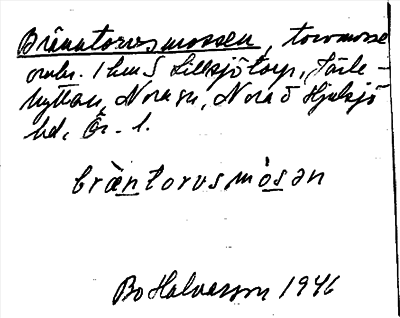 Bränntorvsmossen, torvmosse
omkr. 1 km S Lillsjötorp, Järle-
hyttan, Nora sn, Nora o Hjulsjö
bd, Ör. l.
bræ̀ntorvsmòsən
Bo Halvarson 1946